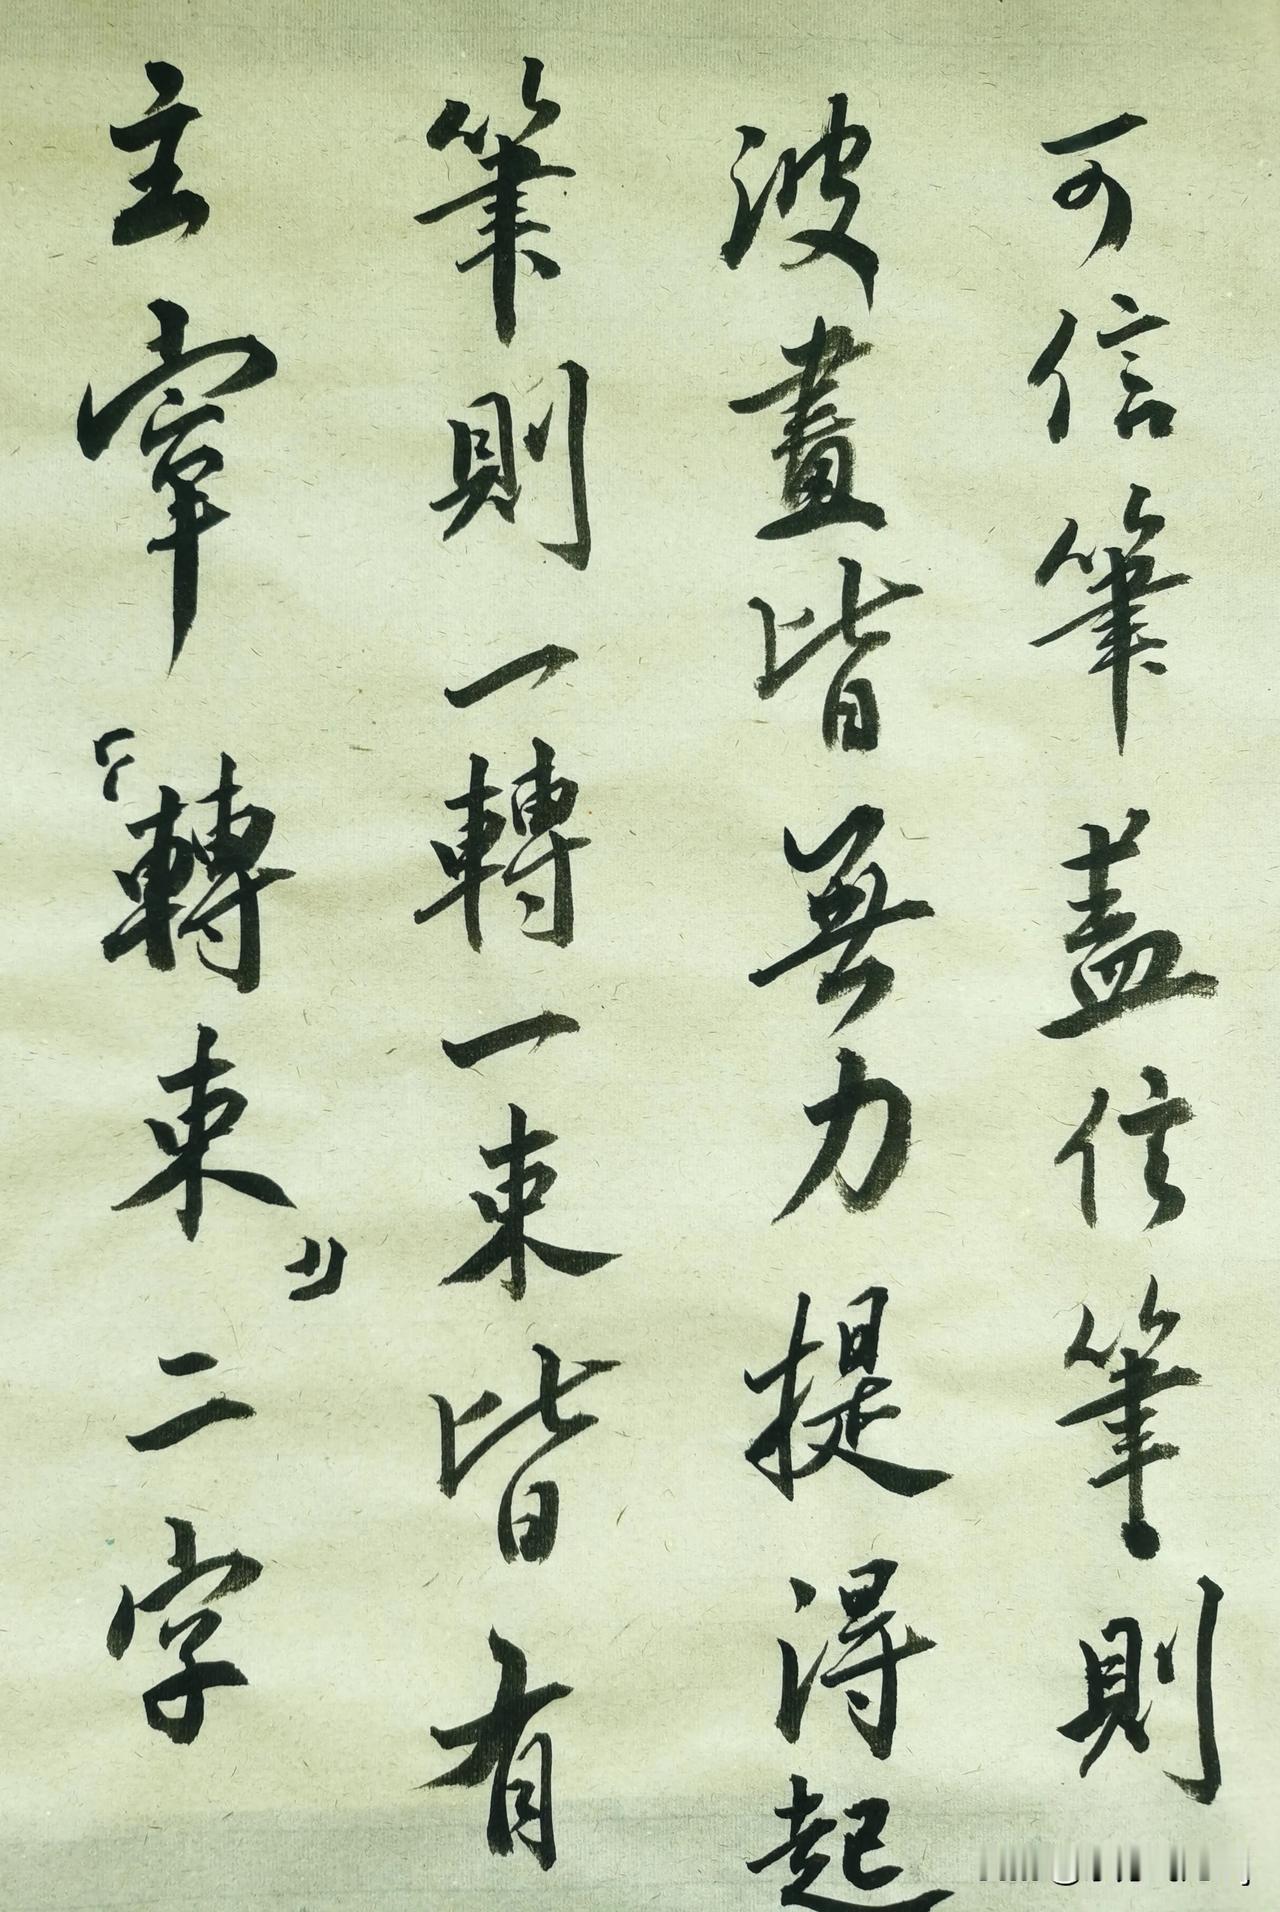 可信筆蓋信筆則
波畫皆無力提得起
筆則一轉一束皆有
主宰『轉束』二字